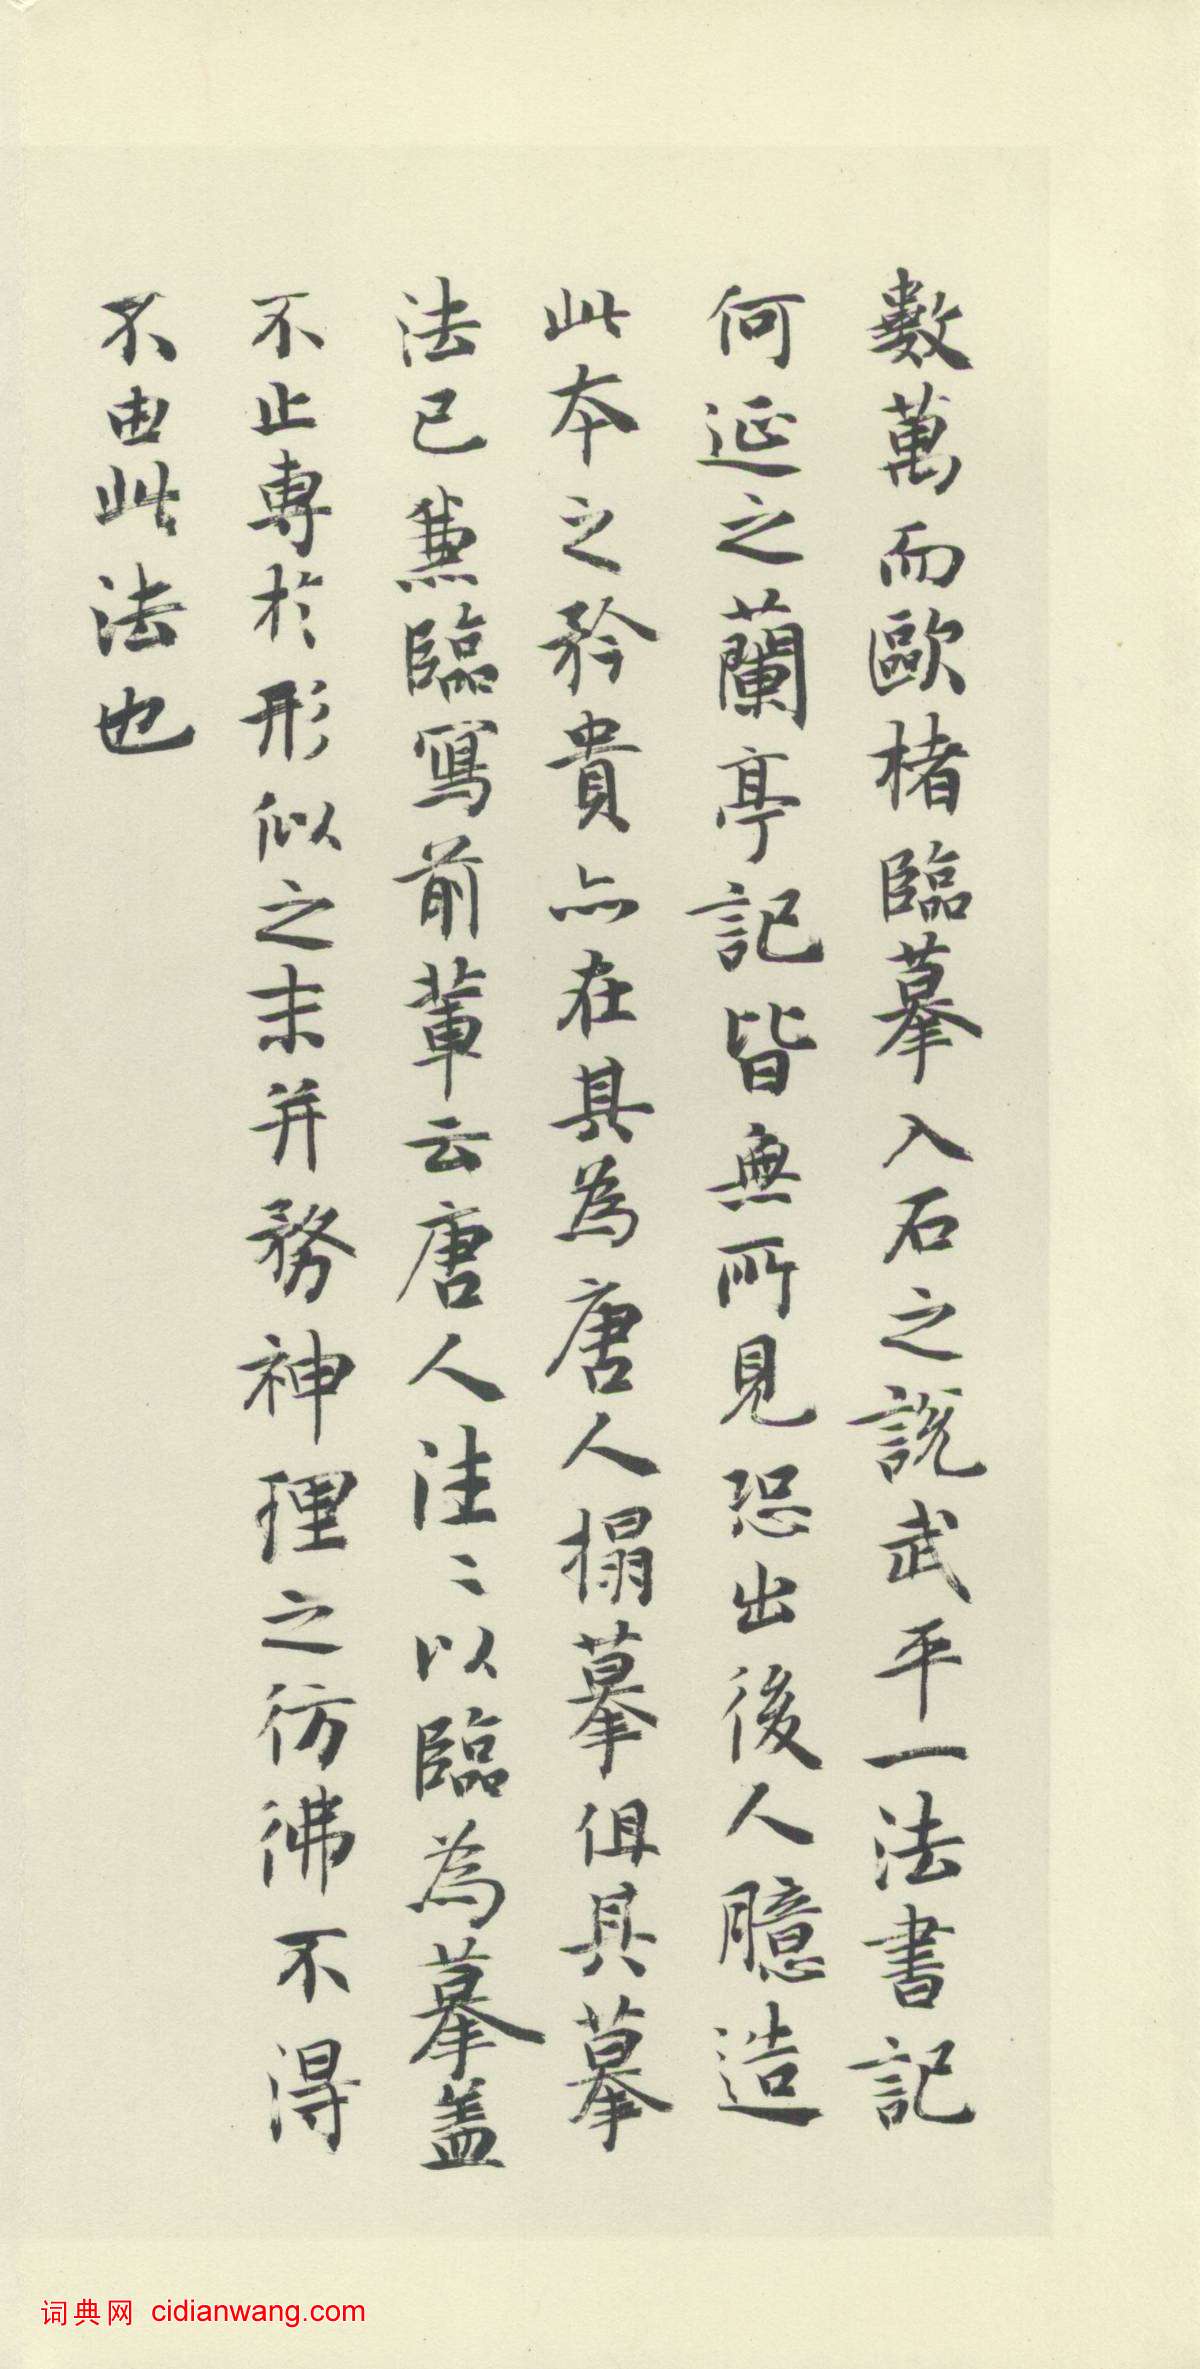 數萬而歐楮臨摹入石之說武平一法書記
何延之蘭亭記皆無所見恐出後人臆造
此本之矜貴亦在其為唐人搨摹但其摹
法已兼臨寫前輩云唐人往〻以臨為摹蓋
不止專於形似之末并務神理之彷彿不得
不由此法也
词典网 cidianwang.com